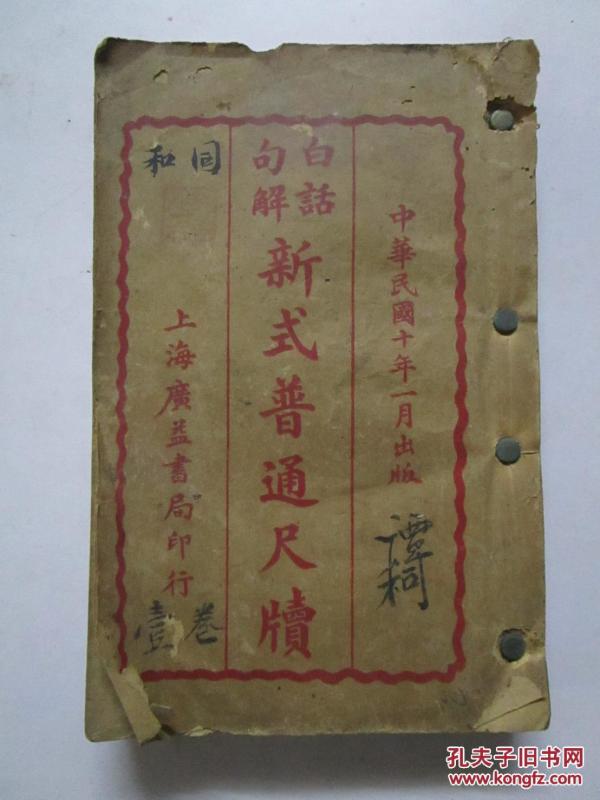 中華民國十年一月出版
白話
句解
新式普通尺牘
上海廣益書局印行
卷壹
孔夫子旧书网
www.kongfz.com